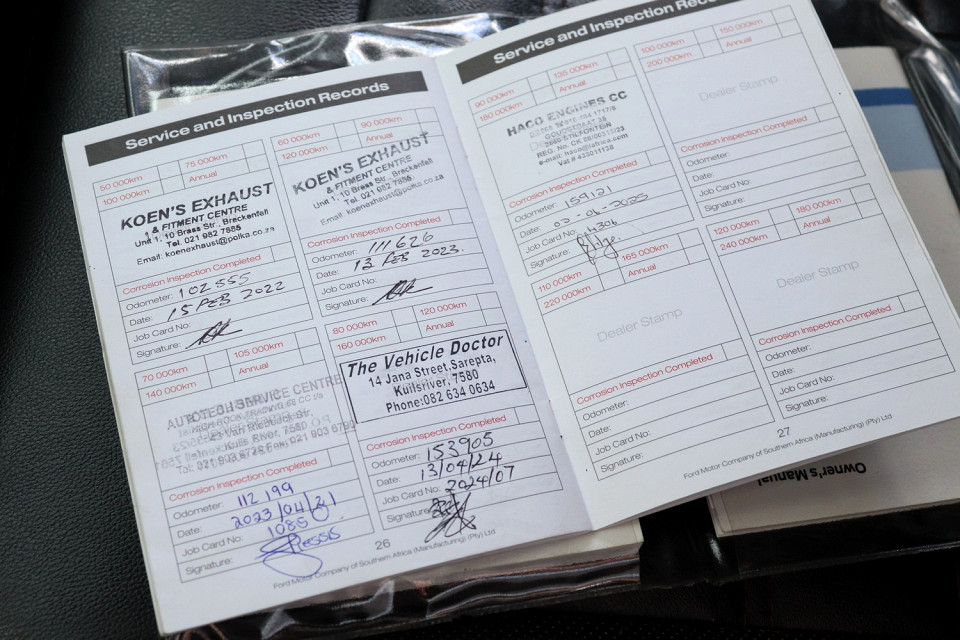 Service and Inspection Records
50 000km
75 000km
100 000km
Annual
KOEN'S EXHAUST
& FITMENT CENTRE
Unit 1, 10 Brass Str., Breckenfell
Tel. 021 982 7885
Email: koenexhaust@polka.co.za
Corrosion Inspection Completed
Odometer: 102 555
Date: 15 FEB 2022
Job Card No:
Signature:
60 000km
90 000km
120 000km
Annual
KOEN'S EXHAUST
& FITMENT CENTRE
Unit 1, 10 Brass Str., Breckenfell
Tel. 021 982 7885
Email: koenexhaust@polka.co.za
Corrosion Inspection Completed
Odometer: 111 626
Date: 13 FEB 2023
Job Card No:
Signature:
70 000km
105 000km
140 000km
Annual
AUTOTECH SERVICE CENTRE
23 Van Riebeeck Str.
Kuils River, 7580
Tel: 021 903 6728 Fax: 021 903
Corrosion Inspection Completed
Odometer: 112 199
Date: 2023/04/21
Job Card No: 1085
Signature:
80 000km
120 000km
160 000km
Annual
The Vehicle Doctor
14 Jana Street,Sarepta,
Kuilsriver, 7580
Phone:082 634 0634
Corrosion Inspection Completed
Odometer: 153905
Date: 13/04/24
Job Card No: 2024/07
Signature:
26
Ford Motor Company of Southern Africa (Manufacturing) (Pty) Ltd
Service and Inspection Records
90 000km
135 000km
180 000km
Annual
HACO ENGINES CC
GOUDSTRAAT 28
STILFONTEIN
REG. No. CK
e-mail: haco@lafrica.com
Vat # 433211138
Corrosion Inspection Completed
Odometer: 159121
Date: 02-04-2025
Job Card No: 4304
Signature:
100 000km
150 000km
200 000km
Annual
Dealer Stamp
Corrosion Inspection Completed
Odometer:
Date:
Job Card No:
Signature:
110 000km
165 000km
220 000km
Annual
Dealer Stamp
Corrosion Inspection Completed
Odometer:
Date:
Job Card No:
Signature:
120 000km
180 000km
240 000km
Annual
Dealer Stamp
Corrosion Inspection Completed
Odometer:
Date:
Job Card No:
Signature:
27
Ford Motor Company of Southern Africa (Manufacturing) (Pty) Ltd
Owner's Manual